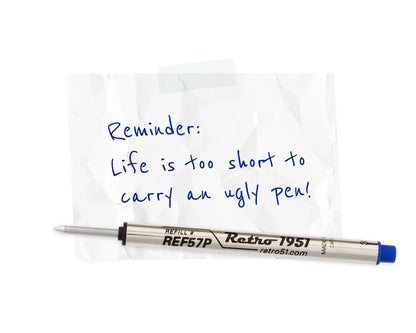 Reminder:
Life is too short to
carry an ugly pen!
REFILL #
REF57P
Retro 1951
retro51.com